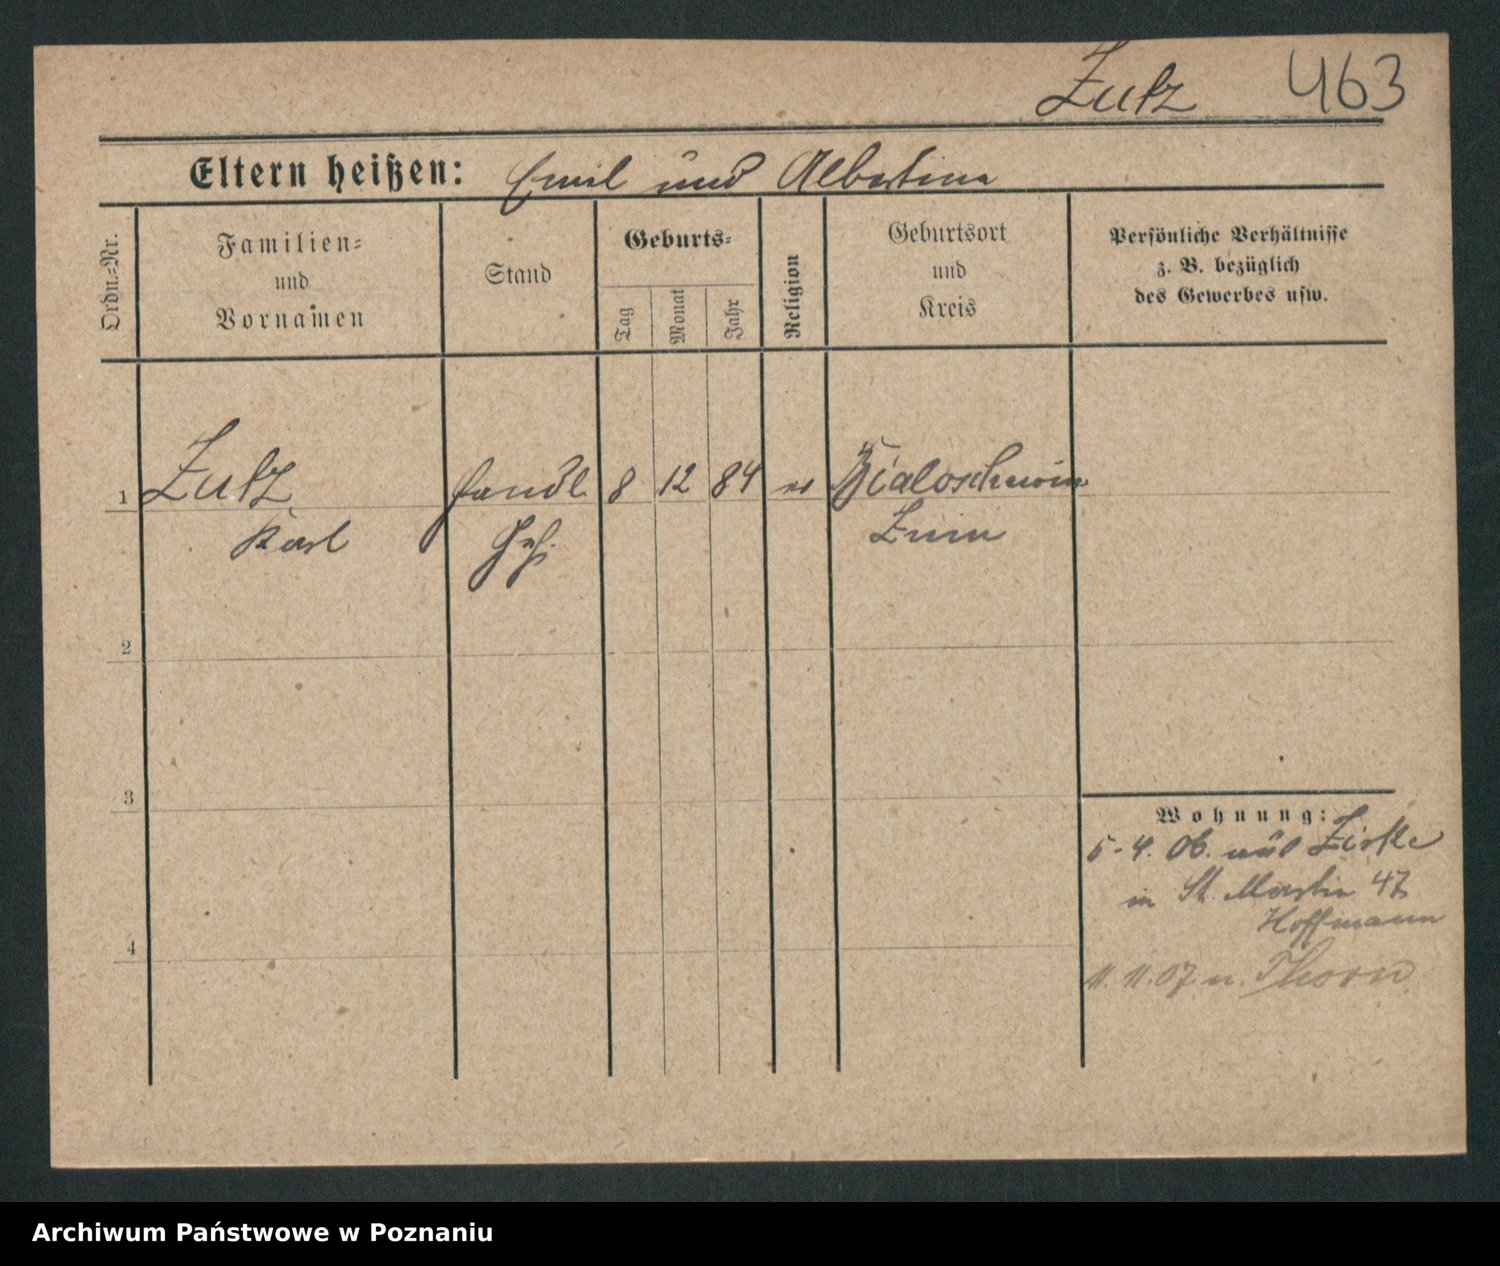 Zutz 463
Eltern heißen: Emil und Albertine
Ordn.-Nr.
Familien-
und
Vornamen
Stand
Geburts-
Tag
Monat
Jahr
Religion
Geburtsort
und
Kreis
Persönliche Verhältnisse
z. B. bezüglich
des Gewerbes usw.
1 Zutz Handl. 8 12 84 ev Bialoschewin
Karl Geh. Znin
2
3
4
Wohnung:
5-4. 06. aus Zirke
in St. Martin 47
Hoffmann
11. 11. 07 n. Thorn
Archiwum Państwowe w Poznaniu